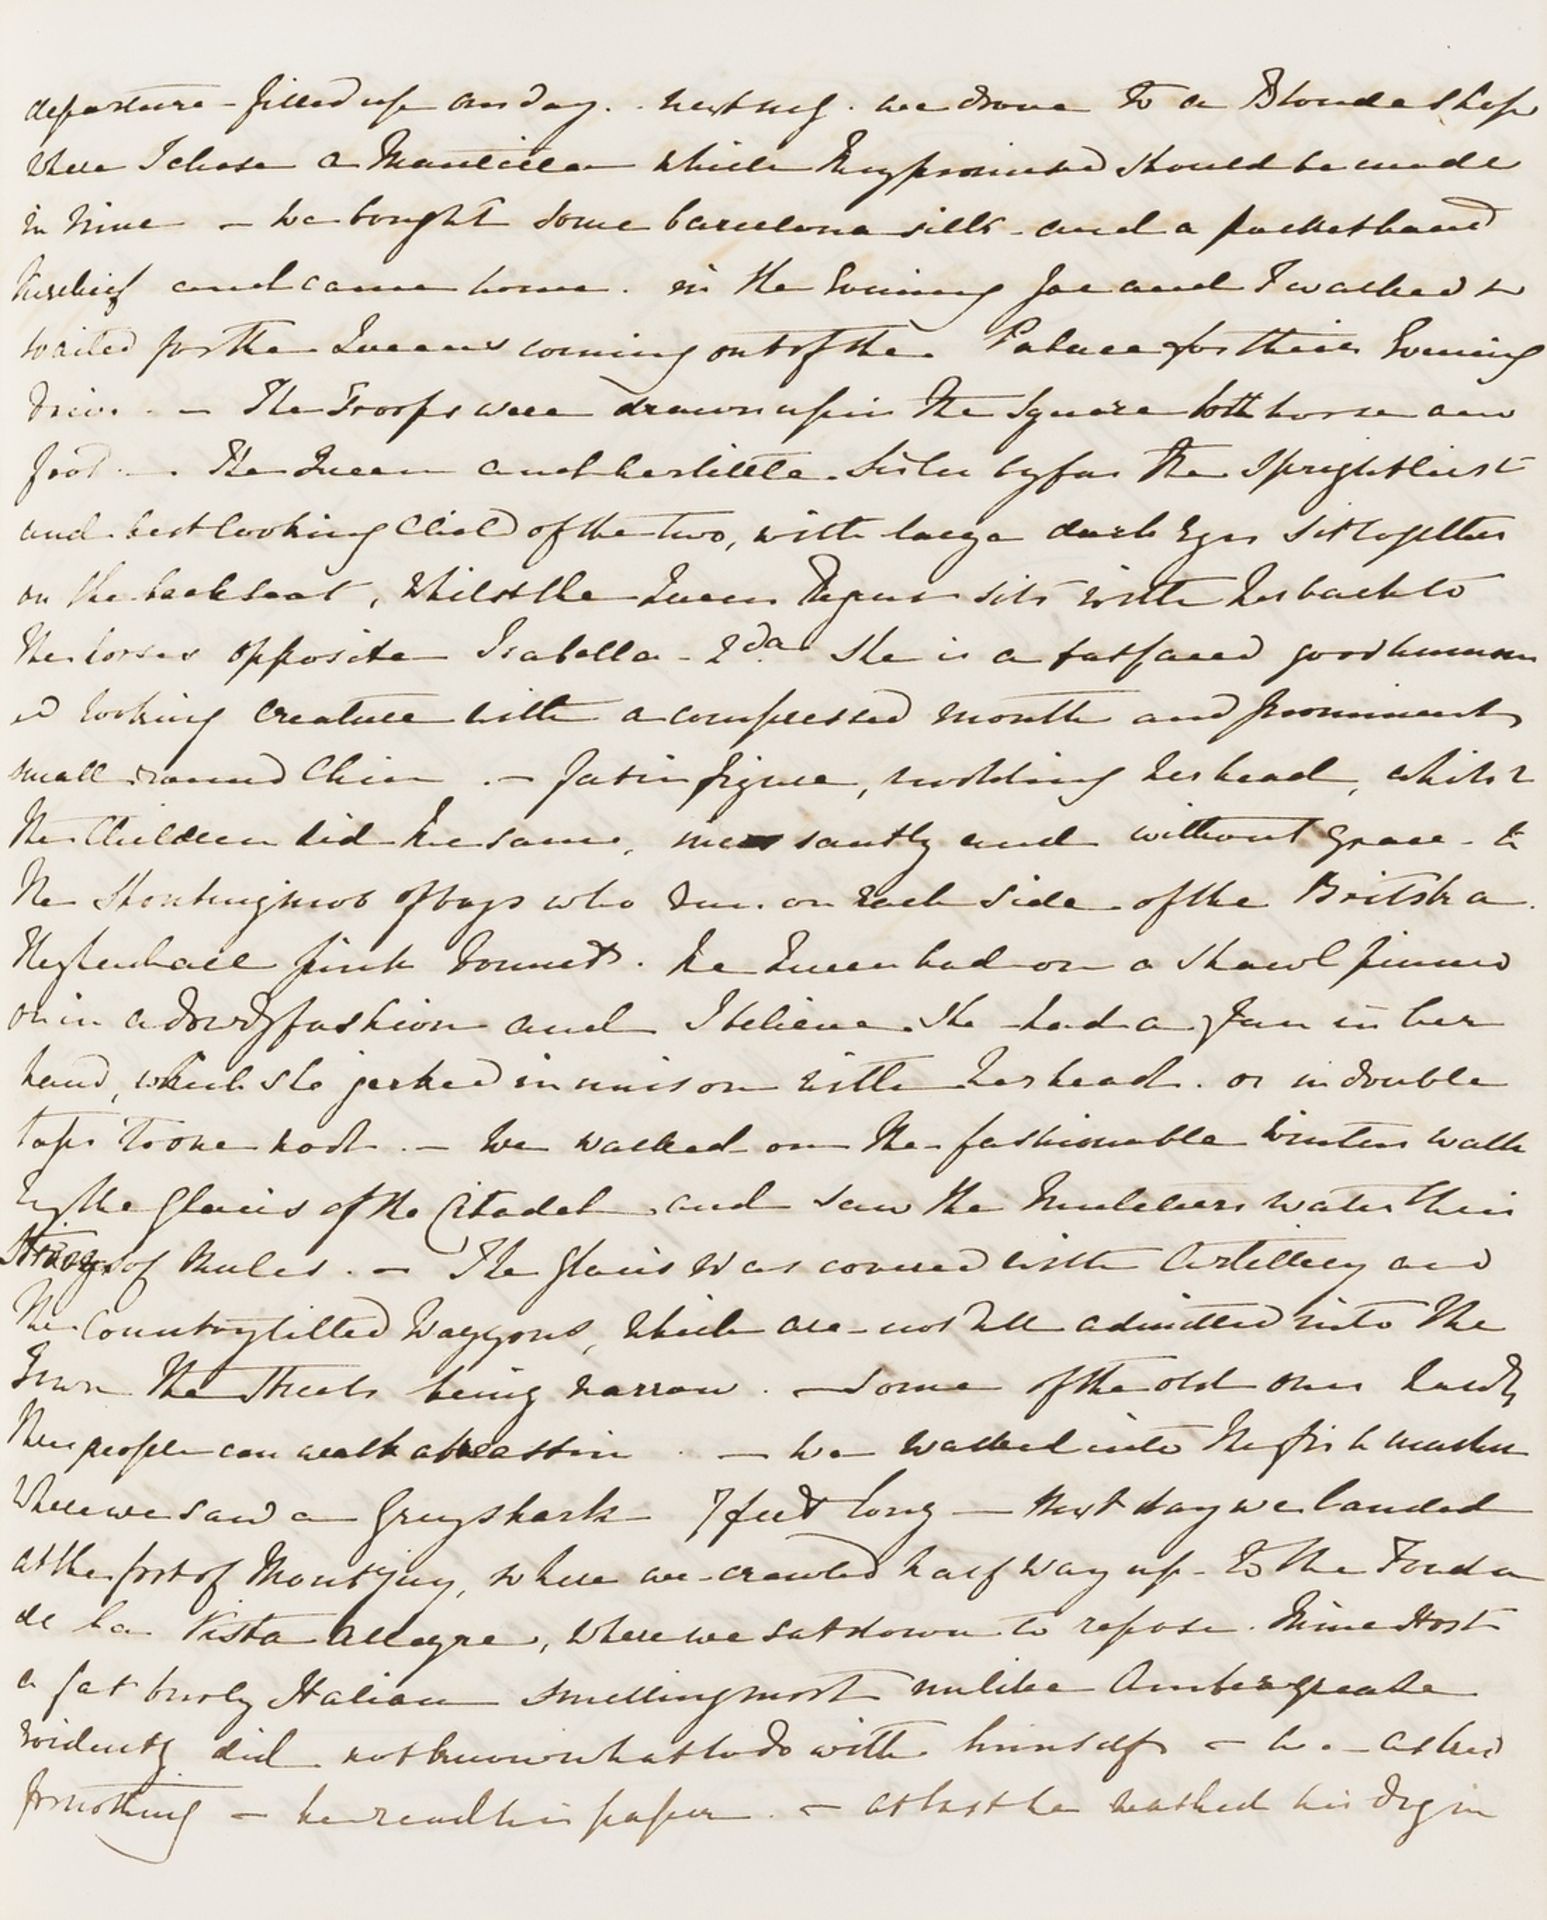 departure - filled up our day. next mg. we drove to a Blonde shop
where I chose a Mantilla which they promised should be made
in time - we bought some barcelona silk - and a pocket hand
kerchief and came home. in the Evening Joe and I walked &
waited for the Queens coming out of the Palace for their Evening
drive. - The Troops were drawn up in the Square both horse and
foot - The Queen and her little Sister by far the Sprightliest
and best looking Child of the two, with large dark Eyes sit together
on the back seat, whilst the Queen Regent sits with her back to
the horses opposite Isabella - 2da. She is a fat faced good humour
ed looking creature with a compressed mouth and prominent
small round Chin. - fat in figure, nodding her head, whilst
the Children did the same, incessantly and without grace - to
the Shouting mob of boys who run on each side of the Britska.
They had all pink bonnets. the Queen had on a Shawl pinned
on in a dowdy fashion and I believe she had a fan in her
hand, which she jerked in unison with her head. or in double
taps to one nod. - We walked on the fashionable Winter walk
by the Glacis of the Citadel and saw the Muleteers water their
Strings of Mules. - The glacis was covered with Artillery and
the Country tilted Waggons, which are not all admitted into the
Town the Streets being narrow. - Some of the old ones hardly
three people can walk abreast in. - We walked into the fish market
where we saw a Grey shark 7 feet long - Next day we landed
at the foot of Montjuy, where we crawled half way up - to the Fonda
de la Vista Allegre, where we sat down to repose. Mine Host
a fat burly Italian smelling most unlike Ambergreake
evidently did not know what to do with himself - he asked
for nothing - he read his paper. - at last he washed his dog in